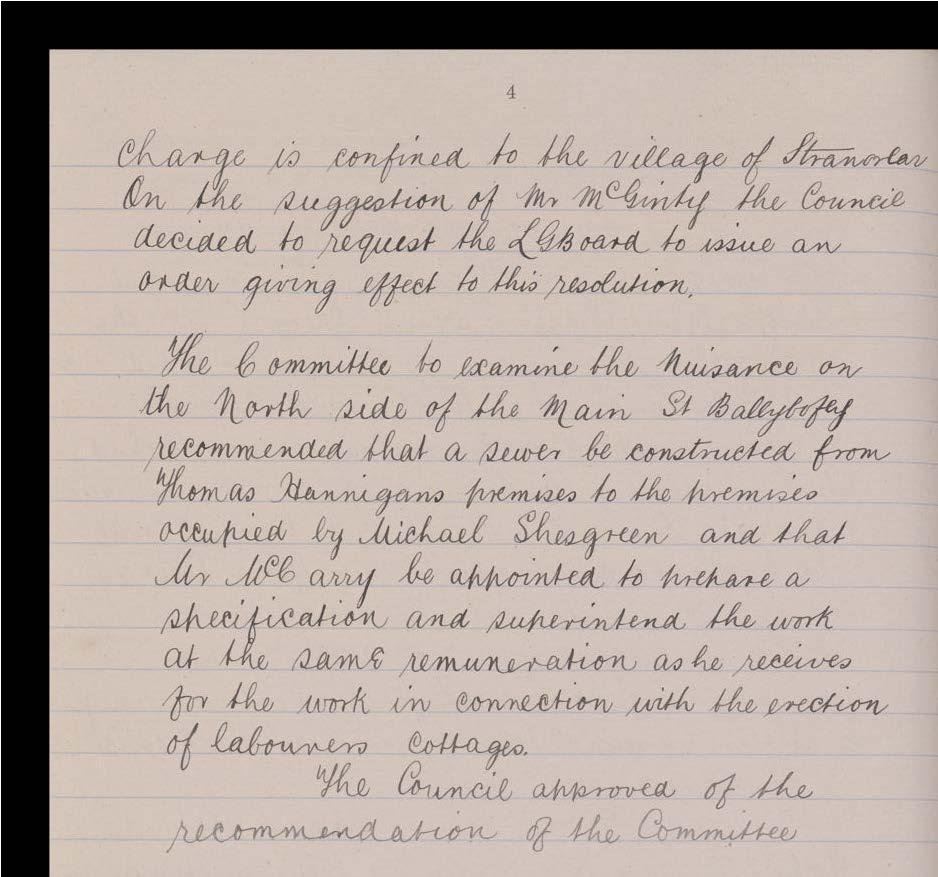 4
Charge is confined to the village of Stranorlar
On the suggestion of Mr McGinty the Council
decided to request the LGBoard to issue an
order giving effect to this resolution.
The Committee to examine the Nuisance on
the North side of the Main St Ballybofey
recommended that a sewer be constructed from
Thomas Hannigans premises to the premises
occupied by Michael Shesgreen and that
Mr McCarry be appointed to prepare a
specification and superintend the work
at the same remuneration as he receives
for the work in connection with the erection
of labourers Cottages.
The Council approved of the
recommendation of the Committee